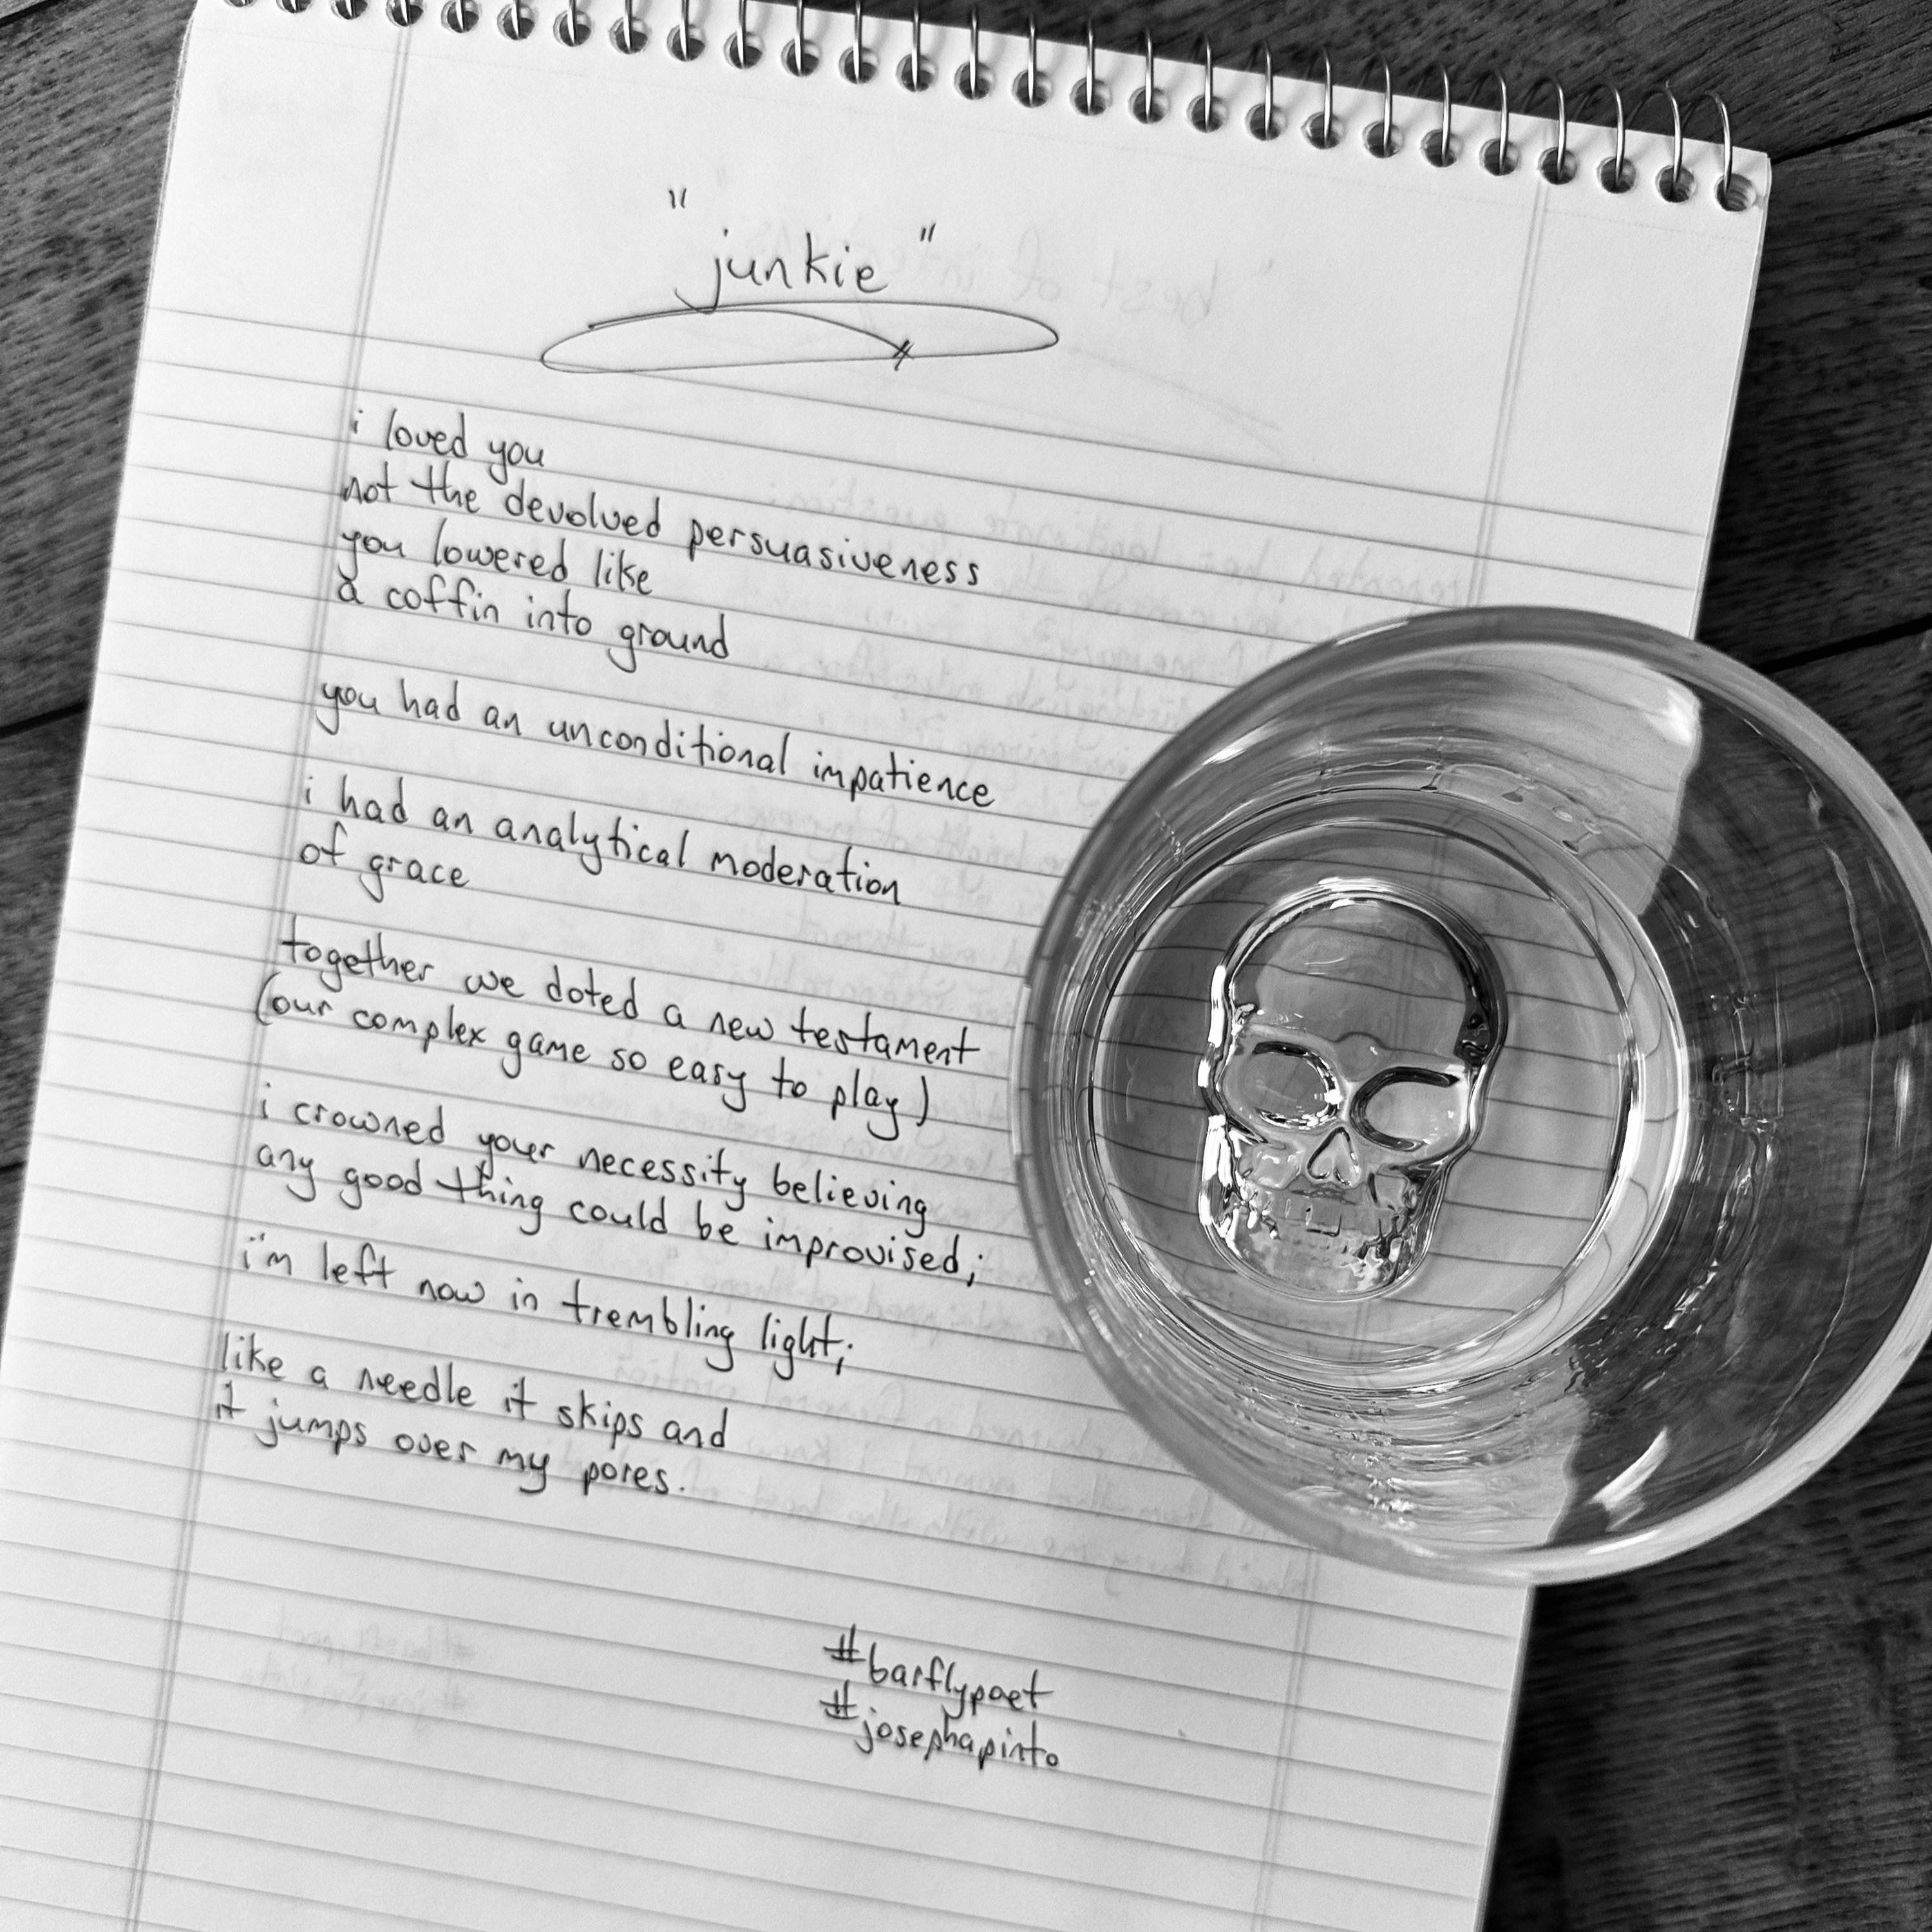 "junkie"
i loved you
not the devolved persuasiveness
you lowered like
a coffin into ground
you had an unconditional impatience
i had an analytical moderation
of grace
together we doted a new testament
(our complex game so easy to play)
i crowned your necessity believing
any good thing could be improvised;
i'm left now in trembling light;
like a needle it skips and
it jumps over my pores.
#barflypoet
#josephapinto